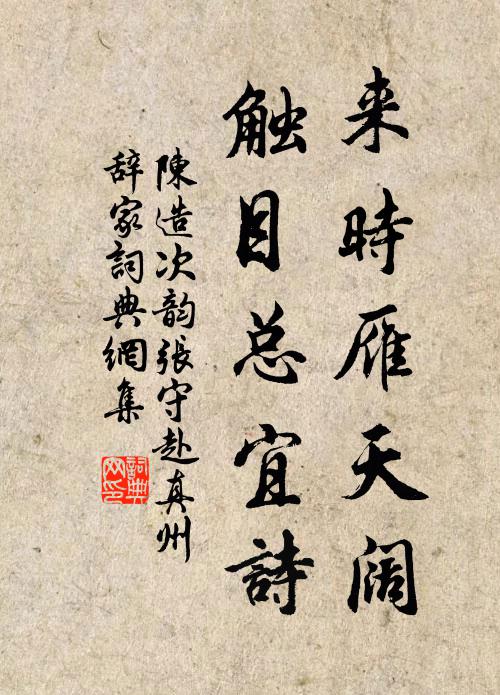 来時雁天阔
触目总宜詩
陳造次韵張守赴真州
辞家詞典網集
詞典
网印